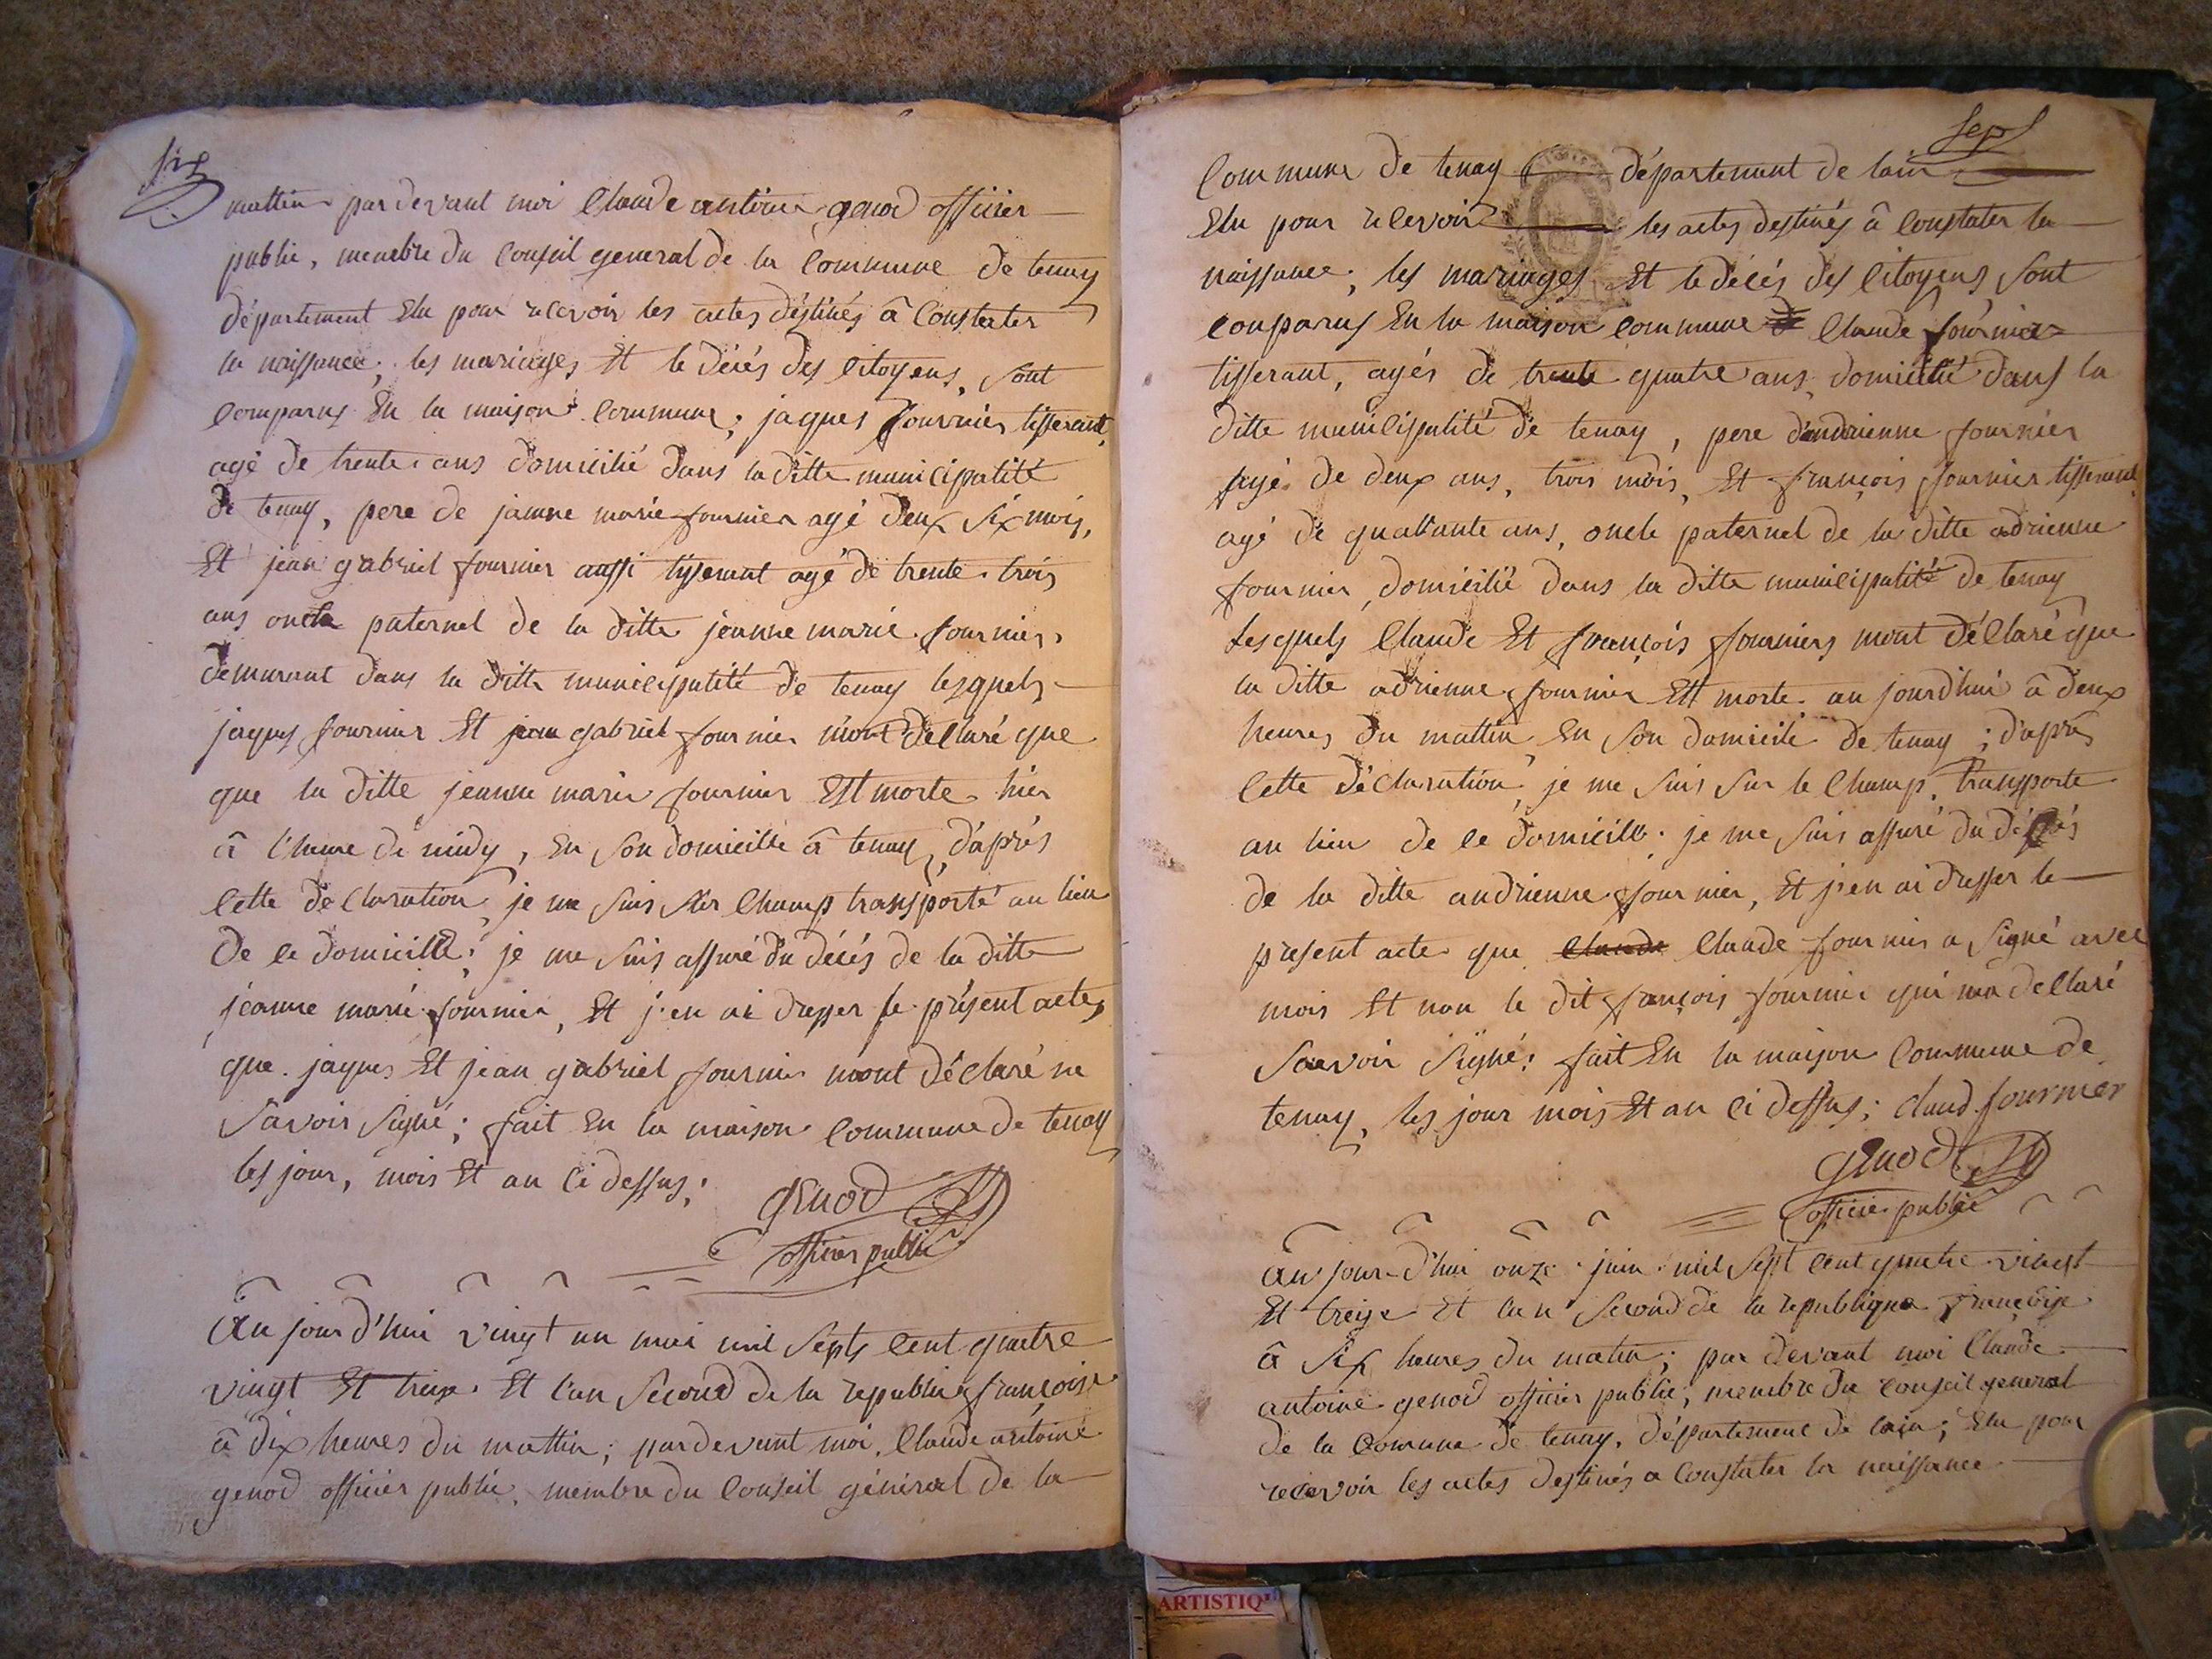 six
mattin par devant moi Claude antoine genod officier
public, membre du Conseil general de la Commune de tenay
département Elu pour recevoir les actes déstinés â Constater
la naissance, les mariages Et le décés des Citoyens, sont
Comparus En la maison Commune, jaques fournier tisserant,
agé de trente ans domicilié dans la ditte municipalité
de tenay, pere de jeanne marie fournier agé deux six mois,
Et jean gabriel fournier aussi tisserant agé de trente trois
ans oncle paternel de la ditte jeanne marie fournier,
demurant dans la ditte municipalité de tenay lesquels
jaques fournier Et jean gabriel fournier mont declaré que
que la ditte jeanne marie fournier Est morte hier
â l'heure de midy, En son domicille â tenay, d'aprés
Cette declaration, je me suis sur Champ transporté au lieu
de Ce domicille; je me suis assuré du décés de la ditte
jeanne marie fournier, Et j'en ai dresser le présent acte,
que jaques Et jean gabriel fournier mont déclaré ne
Savoir signé; fait En la maison Commune de tenay
les jour, mois Et an Ci dessus;
genod
officier public
Au jour d'hui vingt un mai mil septs Cent quatre
vingt Et treize Et l'an Second de la republiq françoise
â dix heures du mattin; par devant moi, Claude antoine
genod officier public, membre du Conseil général de la
Sept
Commune de tenay département de lain
Elu pour recevoir les actes destinés â Constater la
naissance, les mariages Et le décés des Citoyens, sont
Conparus En la maison Commune Claude fournier
tisserant, agés de trente quatre ans domicilié dans la
ditte municipalité de tenay, pere d'andrienne fournier
agé de deux ans, trois mois, Et françois fournier tisserant,
agé de quatrante ans, oncle paternel de la ditte adrienne
fournier, domicilié dans la ditte municipalité de tenay
Lesquels Claude Et françois fourniers mont déClaré que
la ditte adrienne fournier Est morte au jourdhui â deux
heures du mattin En son domicile de tenay; d'aprés
Cette déclaration, je me suis sur le Champ, transporte
au lieu de Ce domicille; je me suis assuré du décés
de la ditte andrienne fournier, Et j'en ai dresser le
présent acte que Claude Claude fournier a Signé avec
mois Et non le dit fançois fournier qui ma declaré
Savoir signé; fait En la maison Commune de
tenay, les jour mois Et an Ci dessus; claud fournier
genod
officier public
Au jour d'hui onze juin mil sept Cent quatre vingt
Et treize Et l'an Second de la republique françoise
â six heures du matin; par devant moi Claude
antoine genod officier public, membre du Conseil general
de la Comune de tenay, département de lain; Elu pour
recevoir les actes destinés a Constater la naissance
ARTISTIQ